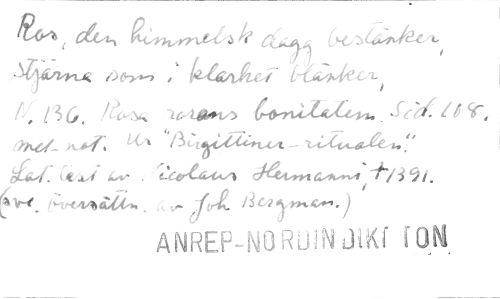 Ros, den himmelsk dagg bestänker,
stjärna som i klarhet blänker,
N. 136. Rosa rorans bonitatem. Sid. 108.
met. not. Ur "Birgittiner-ritualen".
Lat. text av Nicolaus Hermanni, †1391.
(sve. översättn. av Joh Bergman.)
ANREP-NORDIN DIKT TON